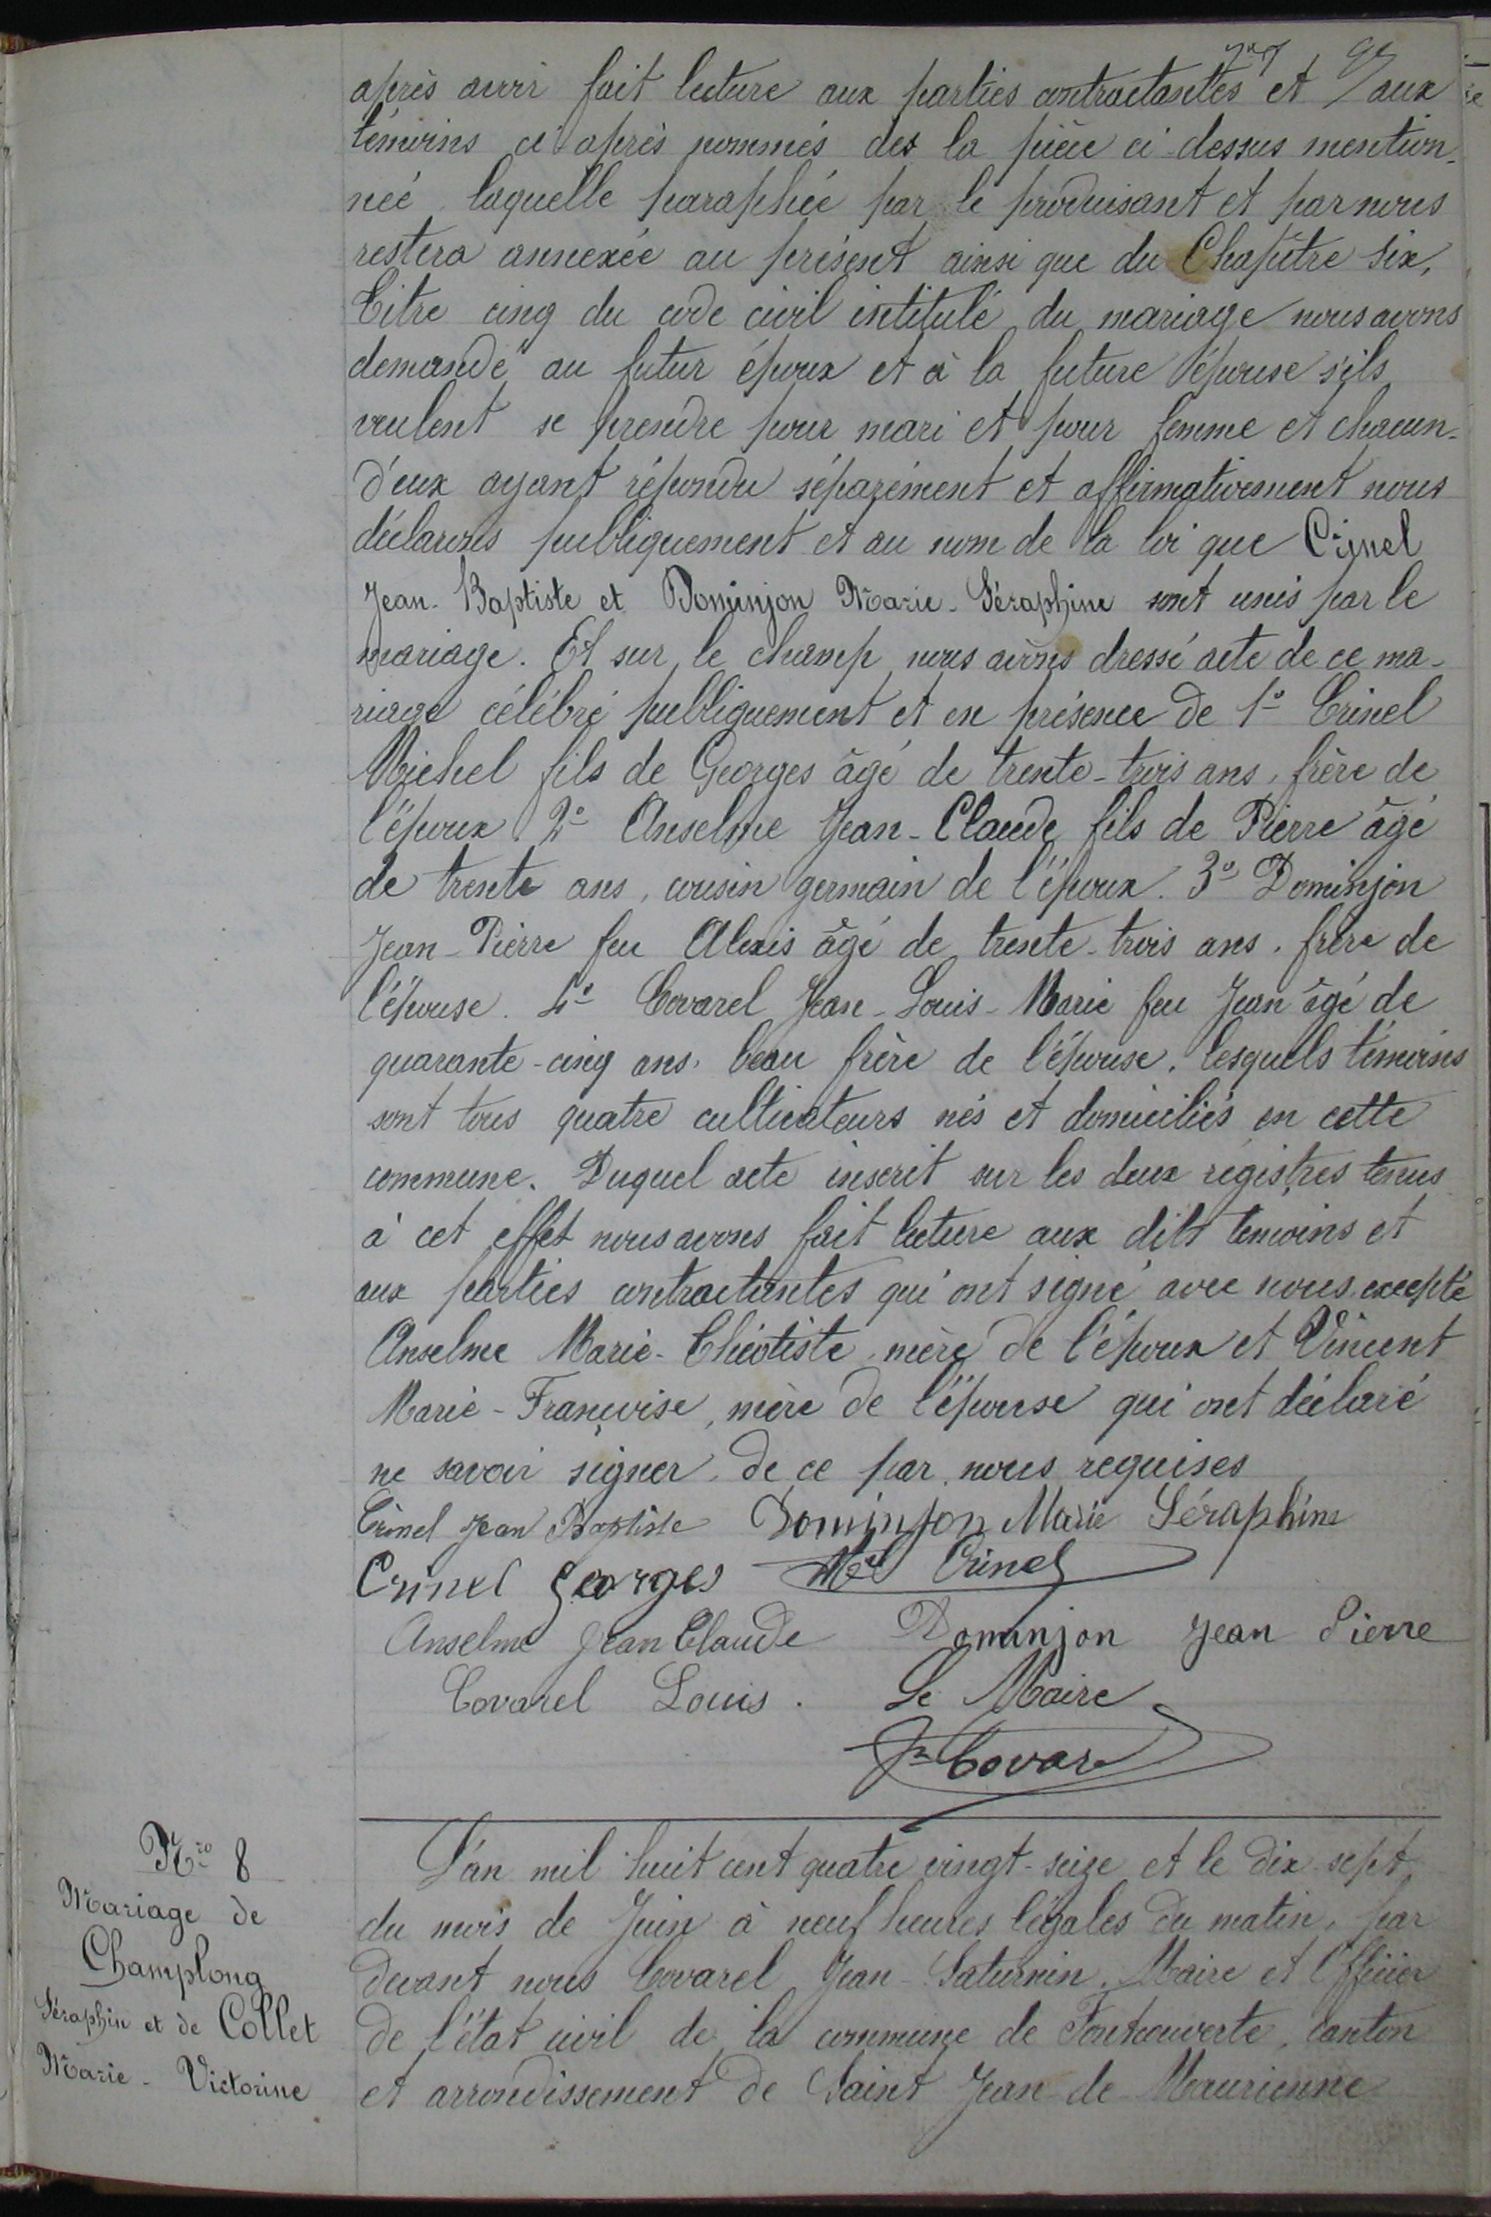 après avoir fait lecture aux parties contractantes et aux
témoins ci après nommés des la pièce ci dessus mention-
née laquelle paraphée par le produisant et par nous
restera annexée au présent ainsi que du Chapitre six,
Titre cinq du code civil intitulé du mariage nous avons
demandé au futur époux et à la future épouse s'ils
veulent se prendre pour mari et pour femme et chacun-
d'eux ayant répondu séparément et affirmativement nous
déclarons publiquement et au nom de la loi que Crinel
Jean-Baptiste et Dominjon Marie-Séraphine sont unis par le
mariage. Et sur le champ nous avons dressé acte de ce ma-
riage célébré publiquement et en présence de 1° Crinel
Michel fils de Georges âgé de trente-trois ans, frère de
l'époux 2° Anselme Jean-Claude fils de Pierre âgé
de trente ans, cousin germain de l'époux. 3° Dominjon
Jean-Pierre feu Alexis âgé de trente-trois ans, frère de
l'épouse. 4° Covarel Jean-Louis-Marie feu Jean âgé de
quarante-cinq ans, beau frère de l'épouse, lesquels témoins
sont tous quatre cultivateurs nés et domiciliés en cette
commune. Duquel acte inscrit sur les deux régistres tenus
à cet effet nous avons fait lecture aux dits témoins et
aux parties contractantes qui ont signé avec nous excepté
Anselme Marie-Théotiste mère de l'époux et Vincent
Marie-Françoise, mère de l'épouse qui ont déclaré
ne savoir signer de ce par nous requises
Crinel Jean Baptiste Dominjon Marie Séraphine
Crinel Georges Mel Crinel
Anselme Jean Claude Dominjon Jean Pierre
Covarel Louis. Le Maire
Jn Covarel
Nro 8
Mariage de
Champlong
Séraphin et de Collet
Marie-Victorine
L'an mil huit cent quatre vingt-seize et le dix sept
du mois de Juin à neuf heures légales du matin, par
devant nous Covarel Jean-Saturnin, Maire et Officier
de l'état civil de la commune de Fontcouverte, canton
et arrondissement de Saint Jean de Maurienne